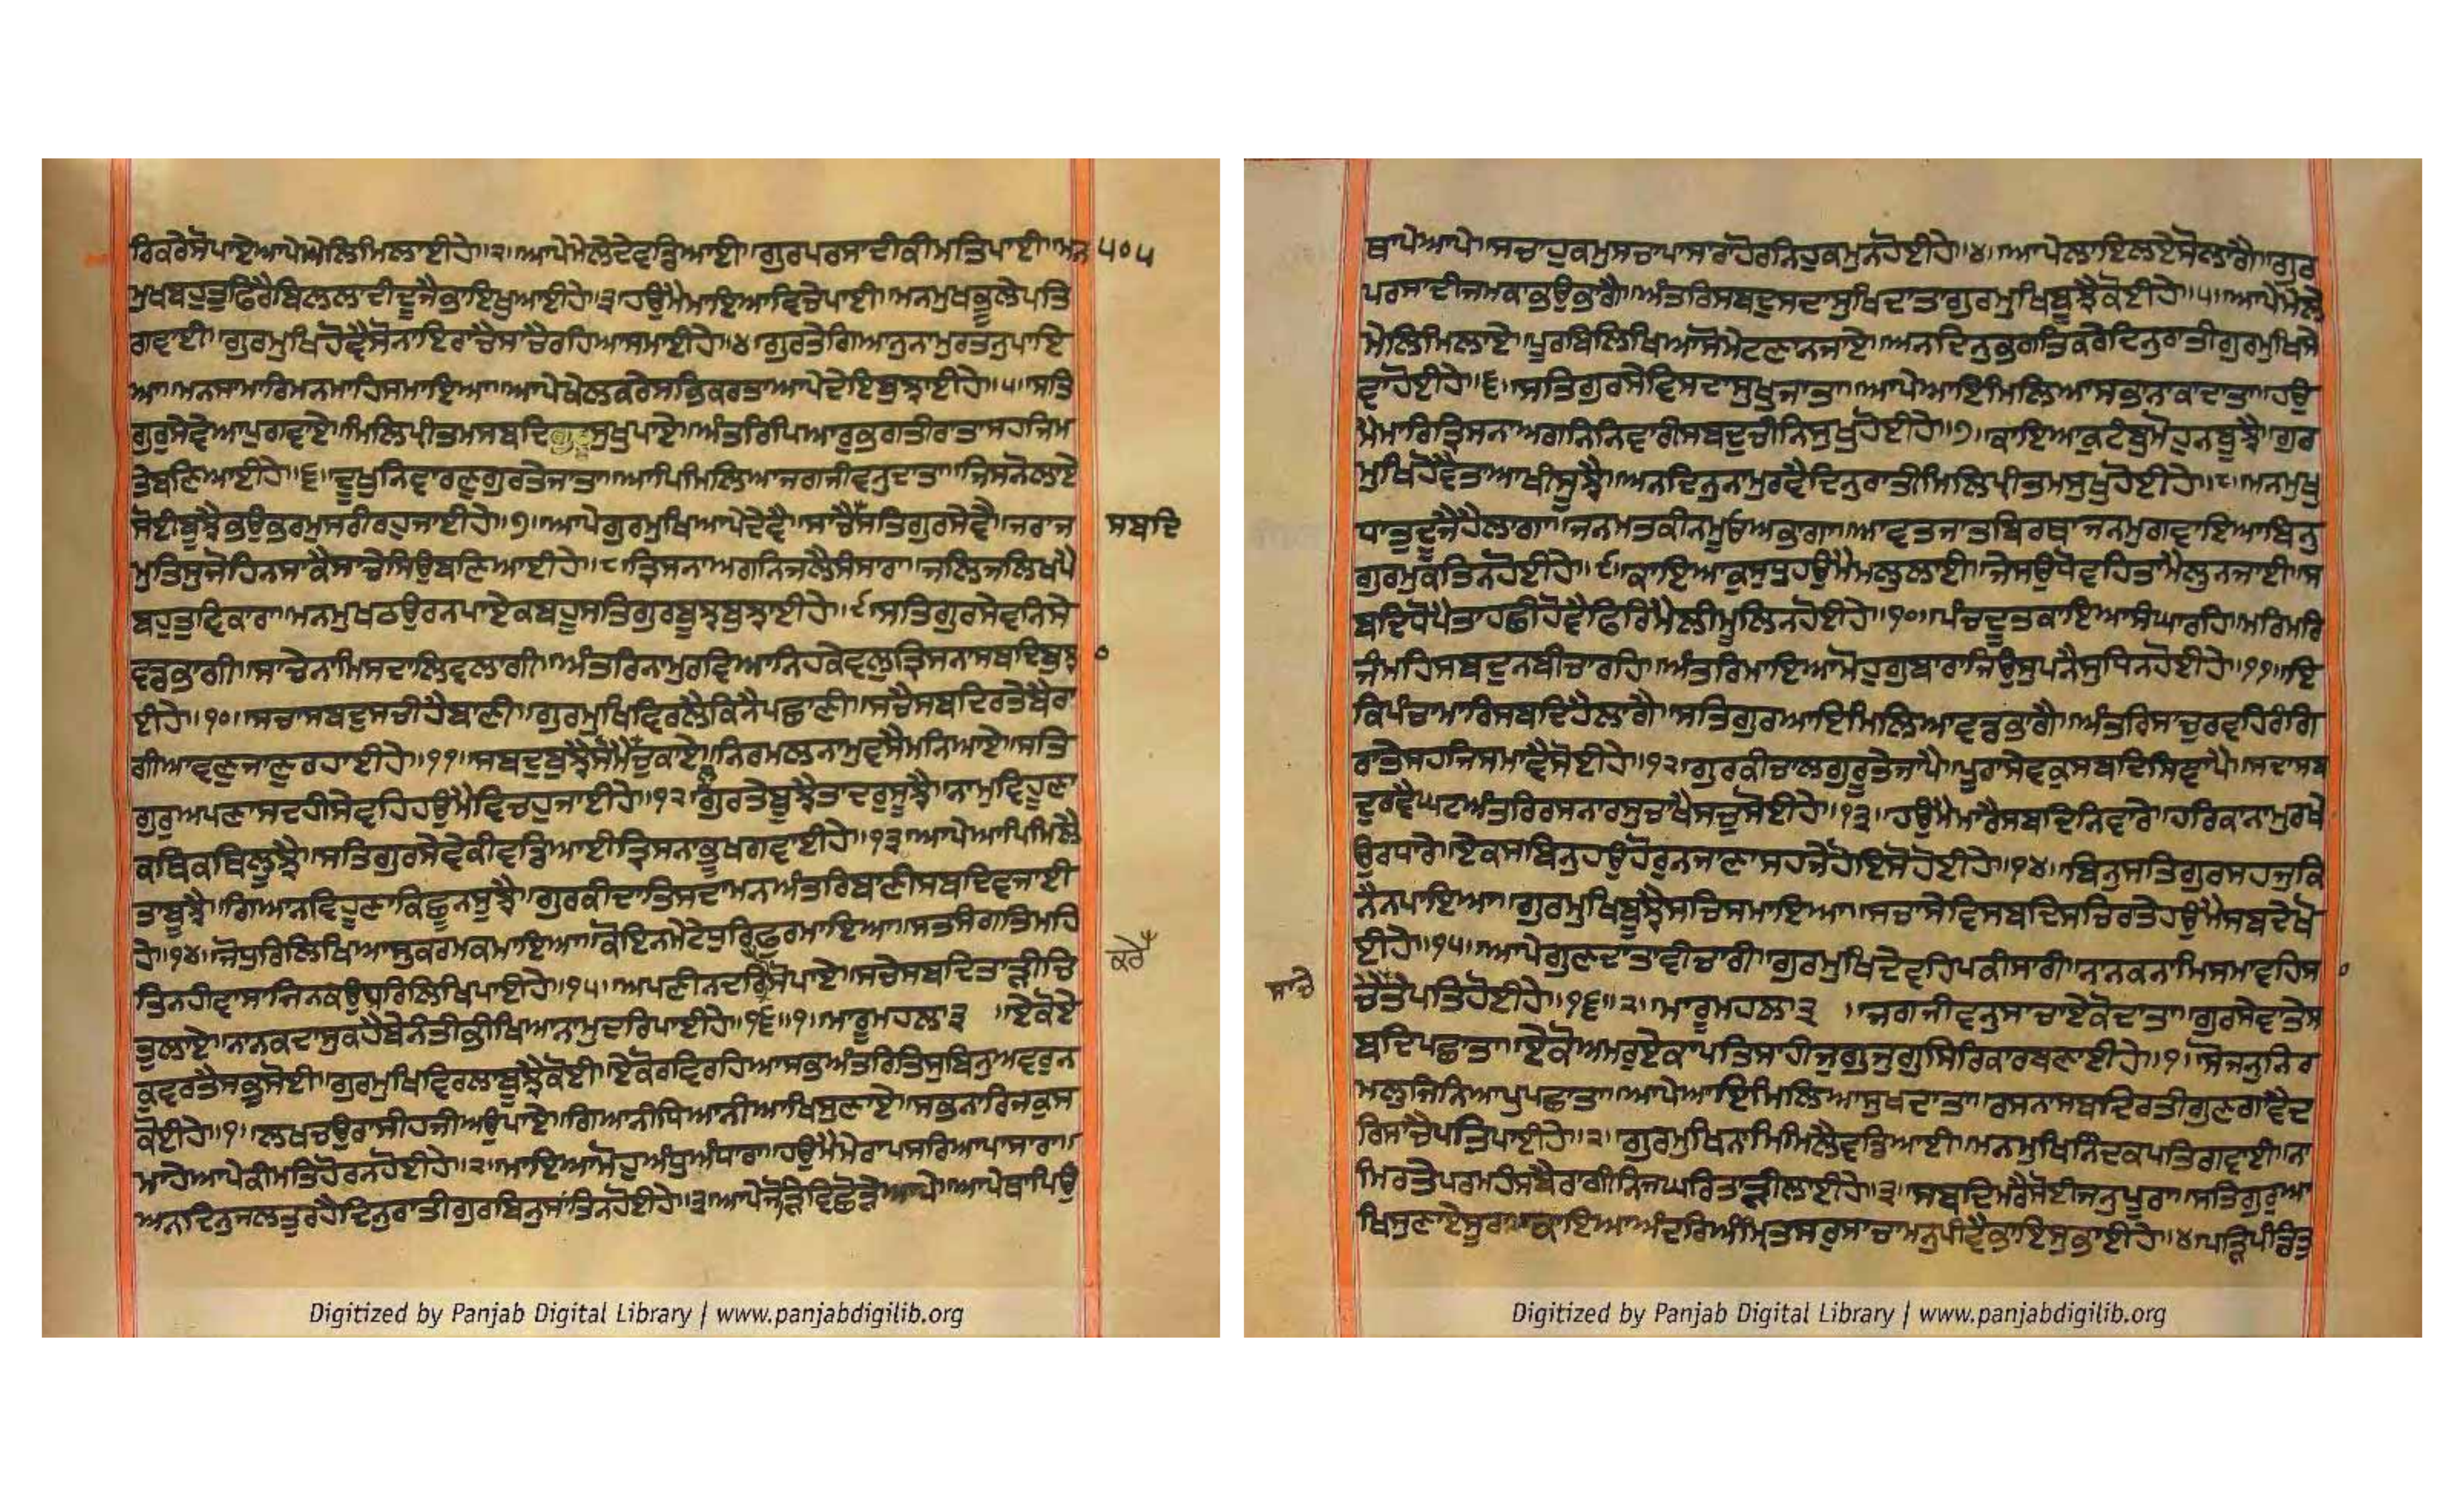 ਰਿਕਰੇਸੋਪਾਏਆਪੇਮੇਲਿਮਿਲਾਈਹੇ॥੨॥ਆਪੇਮੇਲੇਦੇਵਡਿਆਈ॥ਗੁਰਪਰਸਾਦੀਕੀਮਤਿਪਾਈ॥ਮਨ ੫੦੫
ਮੁਖਬਹੁਤੁਫਿਰੈਬਿਲਲਾਦੀਦੂਜੈਭਾਇਖੁਆਈਹੇ॥੩॥ਹਉਮੈਮਾਇਆਵਿਚੇਪਾਈ॥ਮਨਮੁਖਭੂਲੇਪਤਿ
ਗਵਾਈ॥ਗੁਰਮੁਖਿਹੋਵੈਸੋਨਾਇਰਾਚੈਸਾਚੈਰਹਿਆਸਮਾਈਹੇ॥੪॥ਗੁਰਤੇਗਿਆਨੁਨਾਮੁਰਤਨੁਪਾਇ
ਆ॥ਮਨਸਾਮਾਰਿਮਨਮਾਹਿਸਮਾਇਆ॥ਆਪੇਖੇਲਕਰੇਸਭਿਕਰਤਾਆਪੇਦੇਇਬੁਝਾਈਹੇ॥੫॥ਸਤਿ
ਗੁਰੁਸੇਵੇਆਪੁਗਵਾਏ॥ਮਿਲਿਪੀਤਮਸਬਦਿਸੁਖੁਪਾਏ॥ਅੰਤਰਿਪਿਆਰੁਭਗਤੀਰਾਤਾਸਹਜਿਮ
ਤੇਬਣਿਆਈਹੇ॥੬॥ਦੂਖੁਨਿਵਾਰਣੁਗੁਰਤੇਜਾਤਾ॥ਆਪਿਮਿਲਿਆਜਗਜੀਵਨੁਦਾਤਾ॥ਜਿਸਨੋਲਾਏ
ਸੋਈਬੂਝੈਭਉਭਰਮੁਸਰੀਰਹੁਜਾਈਹੇ॥੭॥ਆਪੇਗੁਰਮੁਖਿਆਪੇਦੇਵੈ॥ਸਾਚੈਸਤਿਗੁਰਸੇਵੈ॥ਜਰਾਜ ਸਬਦਿ
ਮੁਤਿਸੁਜੋਹਿਨਸਾਕੈਸਾਚੇਸਿਉਬਣਿਆਈਹੇ॥੮॥ਤ੍ਰਿਸਨਾਅਗਨਿਜਲੈਸੰਸਾਰਾ॥ਜਲਿਜਲਿਖਪੈ
ਬਹੁਤੁਵਿਕਾਰਾ॥ਮਨਮੁਖਠਉਰਨਪਾਏਕਬਹੂਸਤਿਗੁਰਬੂਝਬੁਝਾਈਹੇ॥੯॥ਸਤਿਗੁਰਸੇਵਨਿਸੇ
ਵਡਭਾਗੀ॥ਸਾਚੇਨਾਮਿਸਦਾਲਿਵਲਾਗੀ॥ਅੰਤਰਿਨਾਮੁਰਵਿਆਨਿਹਕੇਵਲੁਤ੍ਰਿਸਨਾਸਬਦਿਬੁਝ ੦
ਈਹੇ॥੧੦॥ਸਚਾਸਬਦੁਸਚੀਹੈਬਾਣੀ॥ਗੁਰਮੁਖਿਵਿਰਲੈਕਿਨੈਪਛਾਣੀ॥ਸਚੈਸਬਦਿਰਤੇਬੈਰਾ
ਗੀਆਵਣੁਜਾਣੁਰਹਾਈਹੇ॥੧੧॥ਸਬਦੁਬੁਝੈਸੋਮੈਲੁਚੁਕਾਏ॥ਨਿਰਮਲਨਾਮੁਵਸੈਮਨਿਆਏ॥ਸਤਿ
ਗੁਰੁਅਪਣਾਸਦਹੀਸੇਵਹਿਹਉਮੈਵਿਚਹੁਜਾਈਹੇ॥੧੨॥ਗੁਰਤੇਬੂਝੈਤਾਦਰੁਸੂਝੈ॥ਨਾਮੁਵਿਹੂਣਾ
ਕਥਿਕਥਿਲੂਝੈ॥ਸਤਿਗੁਰਸੇਵੇਕੀਵਡਿਆਈਤ੍ਰਿਸਨਾਭੂਖਗਵਾਈਹੇ॥੧੩॥ਆਪੇਆਪਿਮਿਲੈ
ਤਾਬੂਝੈ॥ਗਿਆਨਵਿਹੂਣਾਕਿਛੂਨਸੂਝੈ॥ਗੁਰਕੀਦਾਤਿਸਦਾਮਨਅੰਤਰਿਬਾਣੀਸਬਦਿਵਜਾਈ
ਹੇ॥੧੪॥ਜੋਧੁਰਿਲਿਖਿਆਸੁਕਰਮਕਮਾਇਆ॥ਕੋਇਨਮੇਟੈਧੁਰਿਫੁਰਮਾਇਆ॥ਸਤਸੰਗਤਿਮਹਿ ਕਰੇ
ਤਿਨਹੀਵਾਸਾਜਿਨਕਉਧੁਰਿਲਿਖਿਪਾਈਹੇ॥੧੫॥ਅਪਣੀਨਦਰਿਸੋਪਾਏ॥ਸਚੇਸਬਦਿਤਾੜੀਚਿ
ਤੁਲਾਏ॥ਨਾਨਕਦਾਸੁਕਹੈਬੇਨੰਤੀਭੀਖਿਆਨਾਮੁਦਰਿਪਾਈਹੇ॥੧੬॥੧॥ਮਾਰੂਮਹਲਾ੩ ॥ਏਕੋਏ
ਕੁਵਰਤੈਸਭੁਸੋਈ॥ਗੁਰਮੁਖਿਵਿਰਲਾਬੂਝੈਕੋਈ॥ਏਕੋਰਵਿਰਹਿਆਸਭਅੰਤਰਿਤਿਸੁਬਿਨੁਅਵਰੁਨ
ਕੋਈਹੇ॥੧॥ਲਖਚਉਰਾਸੀਹਜੀਅਉਪਾਏ॥ਗਿਆਨੀਧਿਆਨੀਆਖਿਸੁਣਾਏ॥ਸਭਨਾਰਿਜਕੁਸ
ਮਾਹੇਆਪੇਕੀਮਤਿਹੋਰਨਹੋਈਹੇ॥੨॥ਮਾਇਆਮੋਹੁਅੰਧੁਅੰਧਾਰਾ॥ਹਉਮੈਮੇਰਾਪਸਰਿਆਪਾਸਾਰਾ॥
ਅਨਦਿਨੁਜਲਤੁਰਹੈਦਿਨੁਰਾਤੀਗੁਰਬਿਨੁਸਾਂਤਿਨਹੋਈਹੇ॥੩॥ਆਪੇਜੋੜਿਵਿਛੋੜੇਆਪੇ॥ਆਪੇਥਾਪਿਉ
Digitized by Panjab Digital Library | www.panjabdigilib.org
ਥਾਪੇਆਪੇ॥ਸਚਾਹੁਕਮੁਸਚਾਪਾਸਾਰਾਹੋਰਨਿਹੁਕਮੁਨਹੋਈਹੇ॥੪॥ਆਪੇਲਾਇਲਏਸੋਲਾਗੈ॥ਗੁਰ
ਪਰਸਾਦੀਜਮਕਾਭਉਭਾਗੈ॥ਅੰਤਰਿਸਬਦੁਸਦਾਸੁਖਿਦਾਤਾਗੁਰਮੁਖਿਬੂਝੈਕੋਈਹੇ॥੫॥ਆਪੇਮੇਲੇ
ਮੇਲਿਮਿਲਾਏ॥ਪੁਰਬਿਲਿਖਿਆਸੋਮੇਟਣਾਨਜਾਏ॥ਅਨਦਿਨੁਭਗਤਿਕਰੇਦਿਨੁਰਾਤੀਗੁਰਮੁਖਿਸੇ
ਵਾਹੋਈਹੇ॥੬॥ਸਤਿਗੁਰਸੇਵਿਸਦਾਸੁਖੁਜਾਤਾ॥ਆਪੇਆਇਮਿਲਿਆਸਭਨਾਕਾਦਾਤਾ॥ਹਉ
ਮੈਮਾਰਿਤ੍ਰਿਸਨਾਅਗਨਿਨਿਵਾਰੀਸਬਦੁਚੀਨਿਸੁਖੁਹੋਈਹੇ॥੭॥ਕਾਇਆਕੁਟੰਬੁਮੋਹੁਨਬੂਝੈ॥ਗੁਰ
ਮੁਖਿਹੋਵੈਤਾਆਖੀਸੂਝੈ॥ਅਨਦਿਨੁਨਾਮੁਰਵੈਦਿਨੁਰਾਤੀਮਿਲਿਪੀਤਮਸੁਖੁਹੋਈਹੇ॥੮॥ਮਨਮੁਖੁ
ਧਾਤੁਦੂਜੈਹੈਲਾਗਾ॥ਜਨਮਤਕੀਨਮੂਓਅਭਾਗਾ॥ਆਵਤਜਾਤਬਿਰਥਾਜਨਮੁਗਵਾਇਆਬਿਨੁ
ਗੁਰਮੁਕਤਿਨਹੋਈਹੇ॥੯॥ਕਾਇਆਕੁਸੁਧਹਉਮੈਮਲੁਲਾਈ॥ਜੇਸਉਧੋਵਹਿਤਾਮੈਲੁਨਜਾਈ॥ਸ
ਬਦਿਧੋਪੈਤਾਹਛੀਹੋਵੈਫਿਰਿਮੈਲੀਮੂਲਿਨਹੋਈਹੇ॥੧੦॥ਪੰਚਦੂਤਕਾਇਆਸੰਘਾਰਹਿ॥ਮਰਿਮਰਿ
ਜੰਮਹਿਸਬਦੁਨਬੀਚਾਰਹਿ॥ਅੰਤਰਿਮਾਇਆਮੋਹੁਗੁਬਾਰਾਜਿਉਸੁਪਨੈਸੁਧਿਨਹੋਈਹੇ॥੧੧॥ਇ
ਕਿਪੰਚਾਮਾਰਿਸਬਦਿਹੈਲਾਗੈ॥ਸਤਿਗੁਰਆਇਮਿਲਿਆਵਡਭਾਗੈ॥ਅੰਤਰਿਸਾਚੁਰਵਹਿਰੰਗਿ
ਰਾਤੇਸਹਜਿਸਮਾਵੈਸੋਈਹੇ॥੧੨॥ਗੁਰਕੀਚਾਲਗੁਰੂਤੇਜਾਪੈ॥ਪੂਰਾਸੇਵਕੁਸਬਦਿਸਿਞਾਪੈ॥ਸਦਾਸਬ
ਦੁਰਵੈਘਟਅੰਤਰਿਰਸਨਾਰਸੁਚਾਖੈਸਚੁਸੋਈਹੇ॥੧੩॥ਹਉਮੈਮਾਰੈਸਬਦਿਨਿਵਾਰੇ॥ਹਰਿਕਾਨਾਮੁਰਖੈ
ਉਰਧਾਰੇ॥ਏਕਸਬਿਨੁਹਉਹੋਰੁਨਜਾਣਾਸਹਜੇਹੋਇਸੋਹੋਈਹੇ॥੧੪॥ਬਿਨੁਸਤਿਗੁਰਸਹਜੁਕਿ
ਨੈਨਪਾਇਆ॥ਗੁਰਮੁਖਿਬੂਝੈਸਚਿਸਮਾਇਆ॥ਸਚਾਸੇਵਿਸਬਦਿਸਚਿਰਤੇਹਉਮੈਸਬਦੇਖੋ
ਈਹੇ॥੧੫॥ਆਪੇਗੁਣਦਾਤਾਵੀਚਾਰੀ॥ਗੁਰਮੁਖਿਦੇਵਹਿਪਕੀਸਾਰੀ॥ਨਾਨਕਨਾਮਿਸਮਾਵਹਿਸ ੦
ਸਾਚੇ ਚੈਤੇਪਤਿਹੋਈਹੇ॥੧੬॥੨॥ਮਾਰੂਮਹਲਾ੩ ॥ਜਗਜੀਵਨੁਸਾਚਾਏਕੋਦਾਤਾ॥ਗੁਰਸੇਵਾਤੇਸ
ਬਦਿਪਛਾਤਾ॥ਏਕੋਅਮਰੁਏਕਾਪਤਿਸਾਹੀਜੁਗੁਜੁਗੁਸਿਰਿਕਾਰਬਣਾਈਹੇ॥੧॥ਸੋਜਨੁਨਿਰ
ਮਲੁਜਿਨਿਆਪੁਪਛਾਤਾ॥ਆਪੇਆਇਮਿਲਿਆਸੁਖਦਾਤਾ॥ਰਸਨਾਸਬਦਿਰਤੀਗੁਣਗਾਵੈਦ
ਰਿਸਾਚੈਪਤਿਪਾਈਹੇ॥੨॥ਗੁਰਮੁਖਿਨਾਮਿਮਿਲੈਵਡਿਆਈ॥ਮਨਮੁਖਿਨਿੰਦਕਪਤਿਗਵਾਈ॥ਨਾ
ਮਿਰਤੇਪਰਮਹੰਸਬੈਰਾਗੀਨਿਜਘਰਿਤਾੜੀਲਾਈਹੇ॥੩॥ਸਬਦਿਮਰੈਸੋਈਜਨੁਪੂਰਾ॥ਸਤਿਗੁਰੁਆ
ਖਿਸੁਣਾਏਸੂਰਾ॥ਕਾਇਆਅੰਦਰਿਅੰਮ੍ਰਿਤਸਰੁਸਾਚਾਮਨੁਪੀਵੈਭਾਇਸੁਭਾਈਹੇ॥੪॥ਪੜਿਪੰਡਿਤੁ
Digitized by Panjab Digital Library | www.panjabdigilib.org